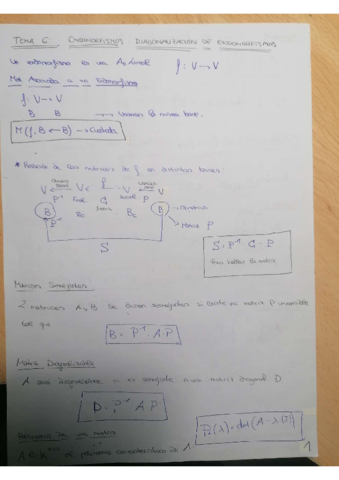 TEMA 6 ENDOMORFISMOS DIAGONALIZACIÓN DE ENDOMORFISMOS
Un endomorfismo es una Ap. lineal f: V → V
Mat Asociada a un Endomorfismo
f: V → V
B B → Usamos la misma base.
M(f, B ← B) → Cuadrada
* Relación de las matrices de f en distintas bases
V V f V V
P⁻¹ C P
B Bc Bc B
P⁻¹ → Matriz P
S
S = P⁻¹ · C · P
Para hallar la matriz
Matrices Semejantes
2 matrices A y B se dicen semejantes si existe una matriz P inversible
tal que
B = P⁻¹ · A · P
Matriz Diagonalizable
A será diagonalizable si es semejante a una matriz diagonal D.
D = P⁻¹ A P
de una matriz
P(λ) = det(A - λI)
A ∈ K el polinomio característico de A
1